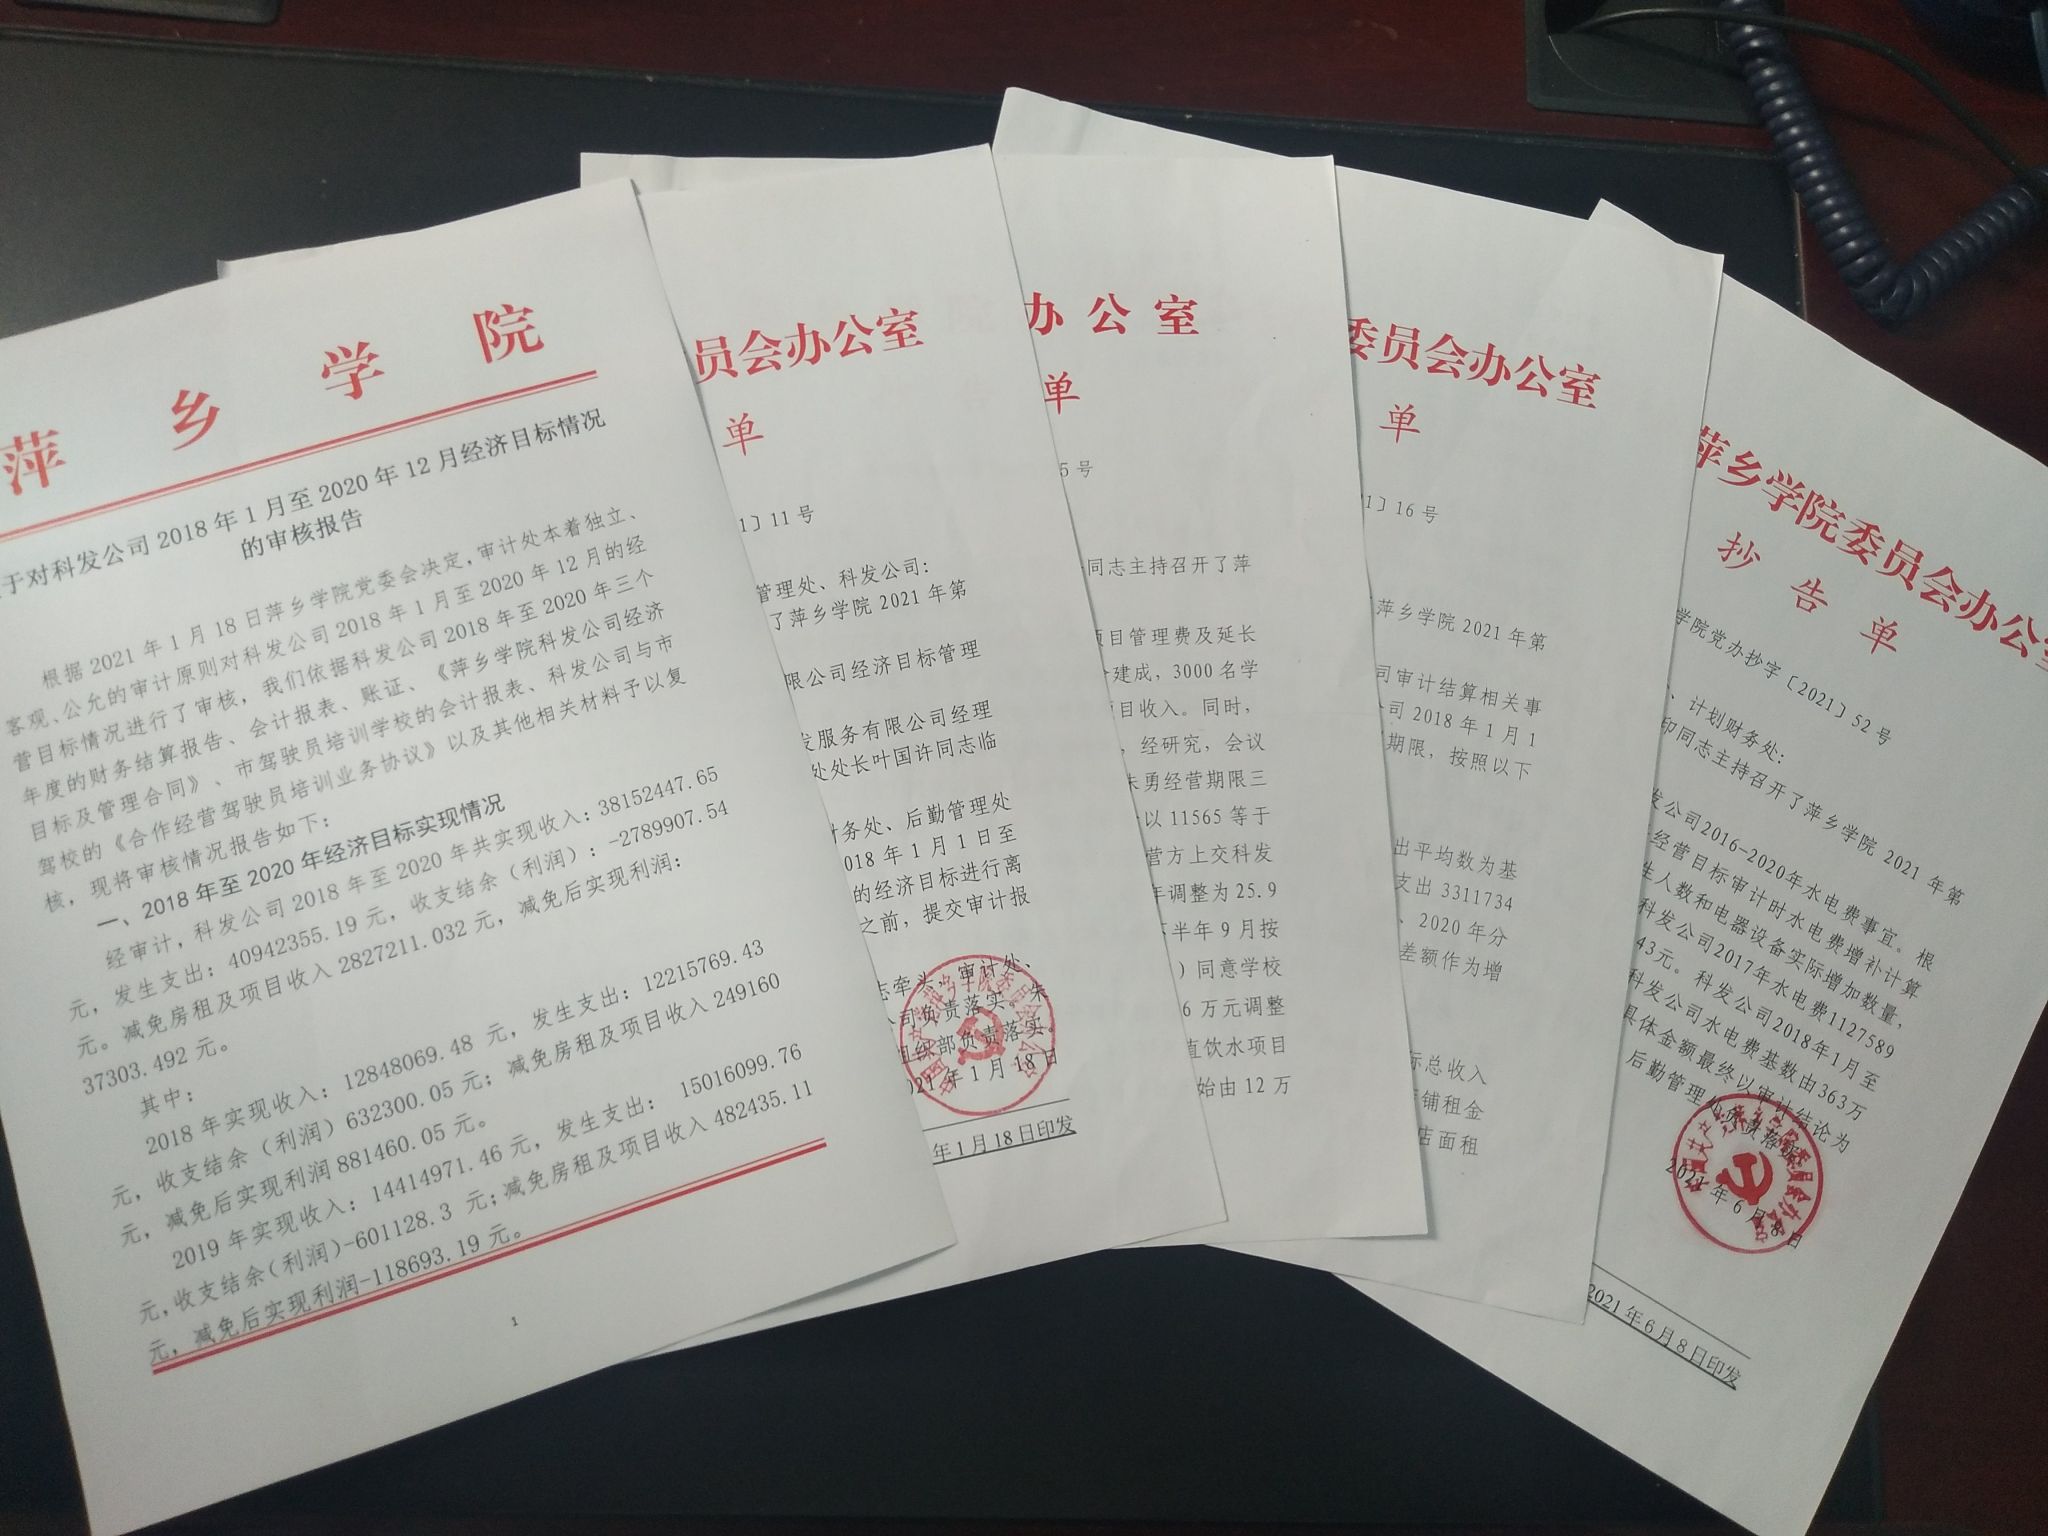 萍乡学院
于对科发公司2018年1月至2020年12月经济目标情况
的审核报告
根据2021年1月18日萍乡学院党委会决定,审计处本着独立、
客观、公允的审计原则对科发公司2018年1月至2020年12月的经
营目标情况进行了审核,我们依据科发公司2018年至2020年三个
年度的财务结算报告、会计报表、账证、《萍乡学院科发公司经济
目标及管理合同》、市驾驶员培训学校的会计报表、科发公司与市
驾校的《合作经营驾驶员培训业务协议》以及其他相关材料予以复
核,现将审核情况报告如下:
一、2018年至2020年经济目标实现情况
经审计,科发公司2018年至2020年共实现收入:38152447.65
元,发生支出:40942355.19元,收支结余(利润):-2789907.54
元。减免房租及项目收入2827211.032元,减免后实现利润:
37303.492元。
其中:
2018年实现收入:12848069.48元,发生支出:12215769.43
元,收支结余(利润)632300.05元;减免房租及项目收入249160
元,减免后实现利润881460.05元。
2019年实现收入:14414971.46元,发生支出:15016099.76
元,收支结余(利润)-601128.3元;减免房租及项目收入482435.11
元,减免后实现利润-118693.19元。
1
员会办公室
单
1〕11号
管理处、科发公司:
了萍乡学院2021年第
限公司经济目标管理
发服务有限公司经理
处处长叶国许同志临
财务处、后勤管理处
018年1月1日至
的经济目标进行离
之前,提交审计报
志牵头,审计处、
公司负责落实。朱
组织部负责落实。
021年1月18日
年1月18日印发
办公室
单
5号
同志主持召开了萍
项目管理费及延长
建成,3000名学
项目收入。同时,
,经研究,会议
朱勇经营期限三
以11565等于
营方上交科发
年调整为25.9
下半年9月按
)同意学校
6万元调整
直饮水项目
始由12万
委员会办公室
单
21〕16号
萍乡学院2021年第
司审计结算相关事
公司2018年1月1
期限,按照以下
出平均数为基
支出3311734
、2020年分
差额作为增
标总收入
铺租金
店面租
萍乡学院委员会办公室
抄告单
学院党办抄字〔2021〕52号
、计划财务处:
印同志主持召开了萍乡学院2021年第
发公司2016-2020年水电费事宜。根
经营目标审计时水电费增补计算
生人数和电器设备实际增加数量,
科发公司2017年水电费1127589
43元。科发公司2018年1月至
科发公司水电费基数由363万
具体金额最终以审计结论为
后勤管理处负责落实。
2021年6月8日
2021年6月8日印发